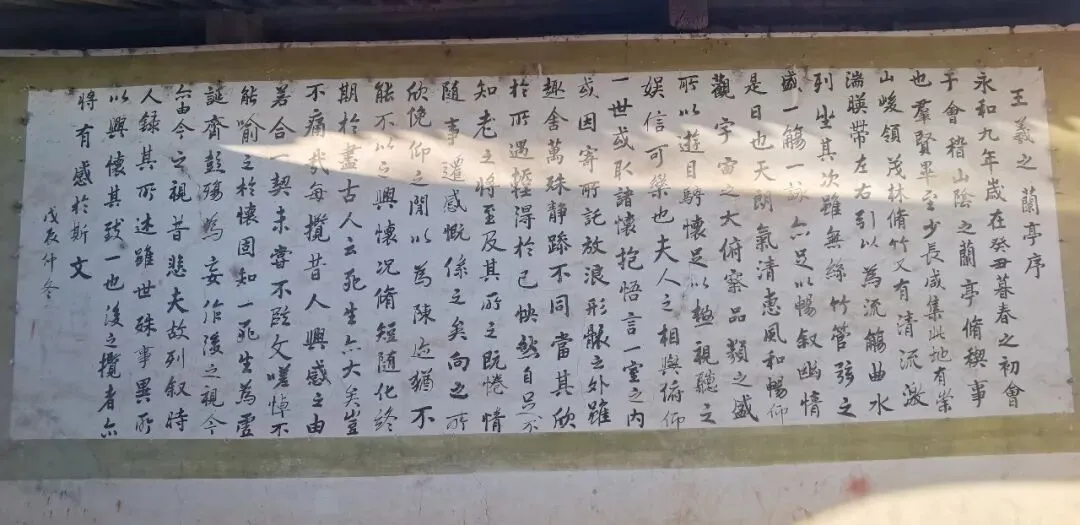 王羲之 蘭亭序
永和九年歲在癸丑暮春之初會
于會稽山陰之蘭亭脩稧事
也羣賢畢至少長咸集此地有崇
山峻領茂林脩竹又有清流激
湍暎帶左右引以為流觴曲水
列坐其次雖無絲竹管弦之
盛一觴一詠亦足以暢叙幽情
是日也天朗氣清惠風和暢仰
觀宇宙之大俯察品類之盛
所以遊目騁懷足以極視聽之
娛信可樂也夫人之相與俯仰
一世或取諸懷抱悟言一室之內
或因寄所託放浪形骸之外雖
趣舍萬殊静躁不同當其欣
於所遇蹔得於己怏然自足不
知老之將至及其所之既惓情
隨事遷感慨係之矣向之所
欣俛仰之閒以為陳迹猶不
能不以之興懷況脩短隨化終
期於盡古人云死生亦大矣豈
不痛哉每攬昔人興感之由
若合一契未嘗不臨文嗟悼不
能喻之於懷固知一死生為虛
誕齊彭殤為妄作後之視今
亦由今之視昔悲夫故列叙時
人錄其所述雖世殊事異所
以興懷其致一也後之攬者亦
將有感於斯文
戊辰仲冬